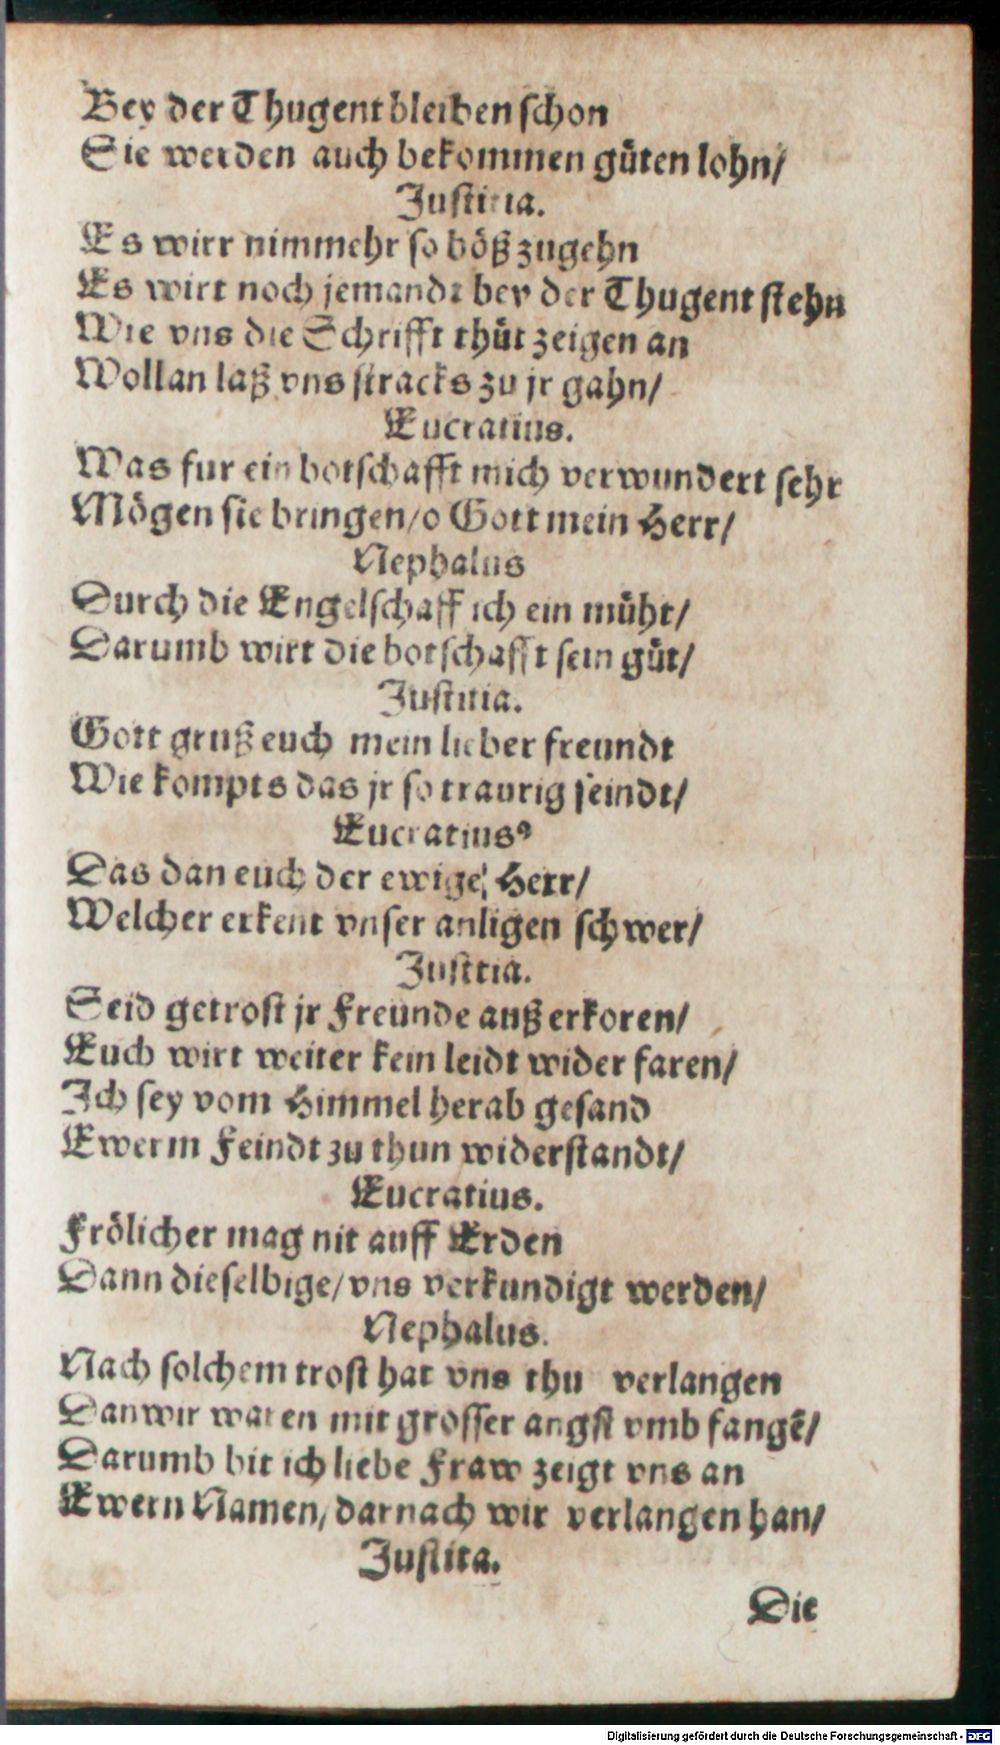 Bey der Thugent bleiben schon
Sie werden auch bekommen güten lohn/
Justitia.
Es wirt nimmehr so böß zugehn
Es wirt noch jemandt bey der Thugent stehn
Wie vns die Schrifft thüt zeigen an
Wollan laß vns stracks zu jr gahn/
Eucratius.
Was fur ein botschafft mich verwundert sehr
Mögen sie bringen/o Gott mein Herr/
Nephalus
Durch die Engelschaff ich ein müht/
Darumb wirt die botschafft sein güt/
Justitia.
Gott gruß euch mein lieber freundt
Wie kompts das jr so traurig seindt/
Eucratius
Das dan euch der ewige Herr/
Welcher erkent vnser anligen schwer/
Justitia.
Seid getrost jr Freunde außerkoren/
Euch wirt weiter kein leidt wider faren/
Ich sey vom Himmel herab gesand
Ewerm Feindt zu thun widerstandt/
Eucratius.
Frölicher mag nit auff Erden
Dann dieselbige/vns verkundigt werden/
Nephalus.
Nach solchem trost hat vns thu verlangen
Dan wir waren mit grosser angst vmb fangē/
Darumb bit ich liebe Fraw zeigt vns an
Ewern Namen/darnach wir verlangen han/
Justita.
Die
Digitalisierung gefördert durch die Deutsche Forschungsgemeinschaft - DFG